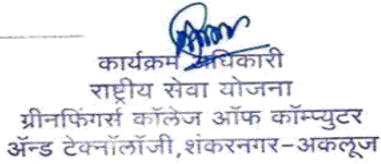 कार्यक्रम अधिकारी
राष्ट्रीय सेवा योजना
ग्रीनफिंगर्स कॉलेज ऑफ कॉम्प्युटर
ॲन्ड टेक्नॉलॉजी,शंकरनगर-अकलूज